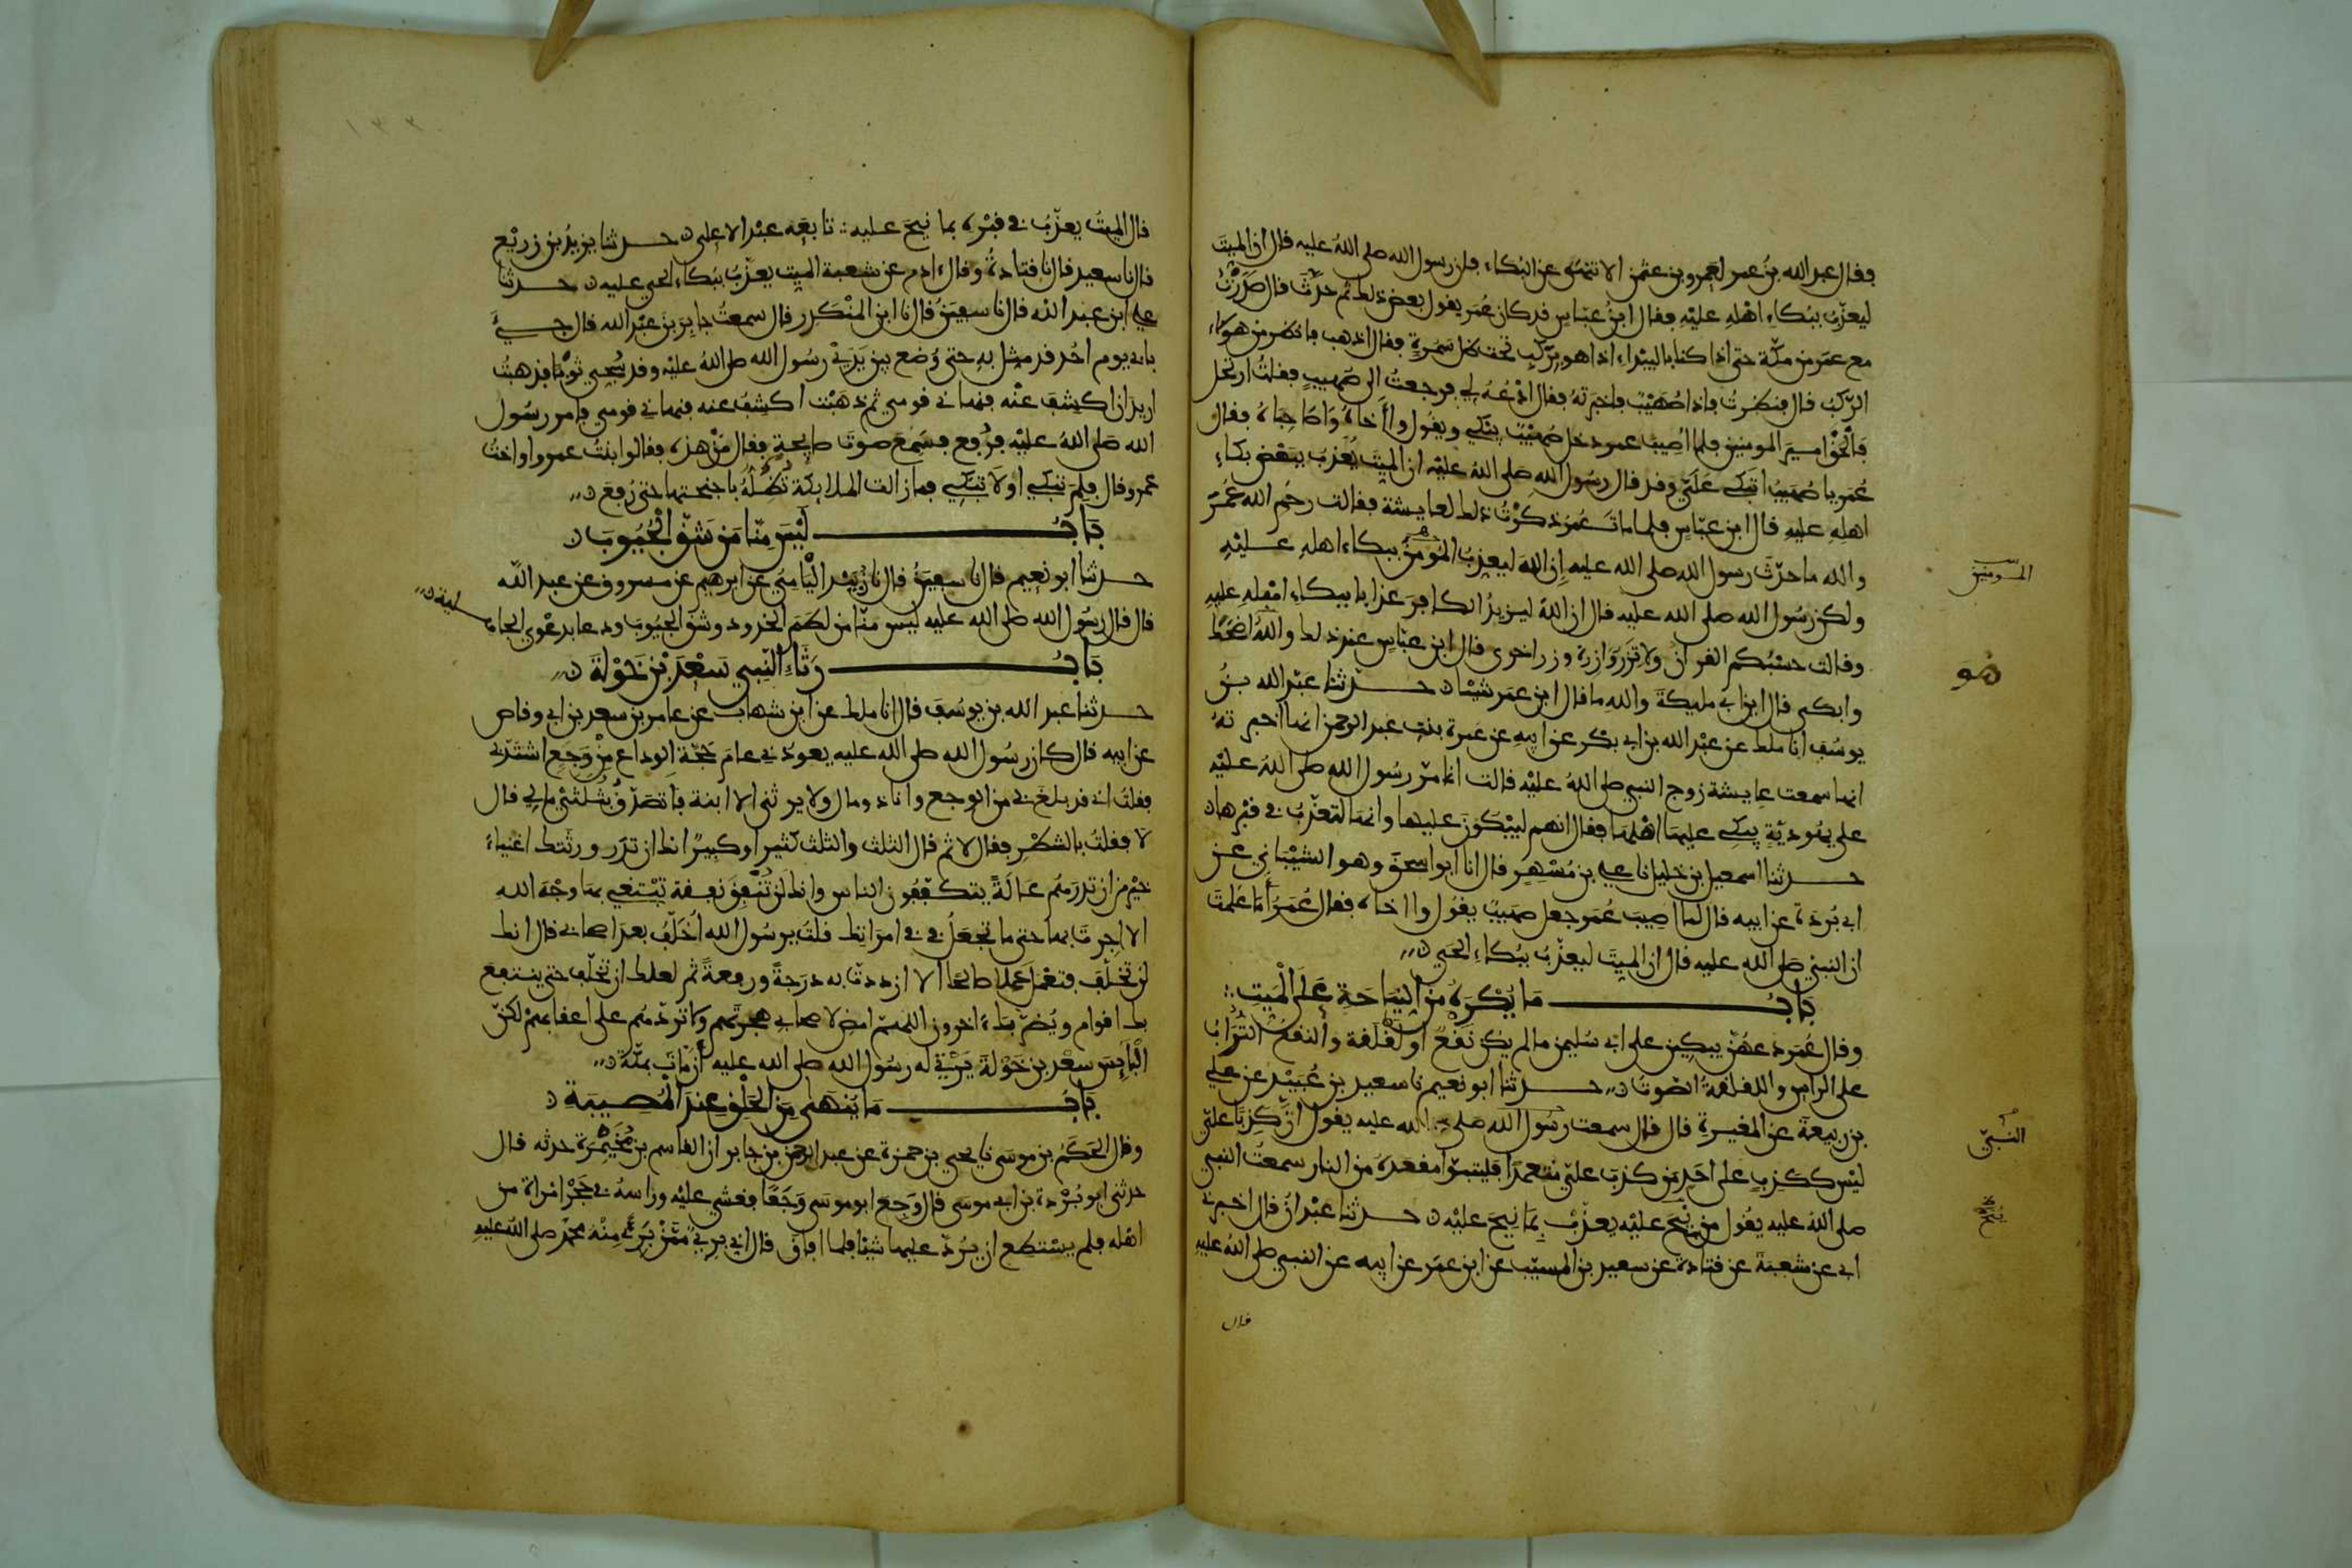 فقال عبد الله بن عمر لعمرو بن عثمن الا تنهى عن البكاء فان رسول الله صلى الله عليه قال ان الميت
ليعذب ببكاء اهله عليه فقال ابن عباس قد كان عمر يقول بعض ذلك ثم حدث قال صدرت
مع عمر من مكة حتى اذا كنا بالبيداء اذا هو بركب تحت ظل سمرة فقال اذهب فانظر من هؤلاء
الركب قال فنظرت فاذا صهيب فاخبرته فقال ادعه لي فرجعت الى صهيب فقلت ارتحل
فالحق امير المومنين فلما اصيب عمر دخل صهيب يبكي ويقول وا أخاه وا صاحباه فقال
عمر يا صهيب اتبكي علي وقد قال رسول الله صلى الله عليه ان الميت يعذب ببعض بكاء
اهله عليه قال ابن عباس فلما مات عمر ذكرت ذلك لعايشة فقالت رحم الله عمر
والله ما حدث رسول الله صلى الله عليه إن الله ليعذب المومن ببكاء اهله عليه
المومنين
ولكن رسول الله صلى الله عليه قال ان الله ليزيد الكافر عذابا ببكاء اهله عليه
وقالت حسبكم القرآن ولا تزر وازرة وزر اخرى قال ابن عباس عند ذلك والله اضحك
هو
وابكى قال ابن ابي مليكة والله ما قال ابن عمر شيئا حدثنا عبد الله بن
يوسف انا ملك عن عبد الله بن ابي بكر عن ابيه عن عمرة بنت عبد الرحمن انها اخبرته
انها سمعت عايشة زوج النبي صلى الله عليه قالت انما مر رسول الله صلى الله عليه
على يهودية يبكي عليها اهلها فقال انهم ليبكون عليها وانها لتعذب في قبرها
حدثنا اسمعيل بن خليل نا علي بن مسهر قال انا ابو اسحق وهو الشيباني عن
ابي بردة عن ابيه قال لما اصيب عمر جعل صهيب يقول وا اخاه فقال عمر أما علمت
ان النبي صلى الله عليه قال ان الميت ليعذب ببكاء الحي
باب ما يكره من النياحة على الميت
وقال عمر دعهن يبكين على ابي سليمن ما لم يكن نقع او لقلقة والنقع التراب
على الراس واللقلقة الصوت حدثنا ابو نعيم نا سعيد بن عبيد عن علي
بن ربيعة عن المغيرة قال قال سمعت رسول الله صلى الله عليه يقول ان كذبا علي
النبي
ليس ككذب على احد من كذب علي متعمدا فليتبوأ مقعده من النار سمعت النبي
صلى الله عليه يقول من نيح عليه يعذب بما نيح عليه حدثنا عبدان قال اخبرني
ابي عن شعبة عن قتادة عن سعيد بن المسيب عن ابن عمر عن ابيه عن النبي صلى الله عليه
قال
١٣٣
قال الميت يعذب في قبره بما نيح عليه تابعه عبد الاعلى حدثنا يزيد بن زريع
قال نا سعيد قال نا قتادة وقال ادم عن شعبة الميت يعذب ببكاء الحي عليه حدثنا
علي ابن عبد الله قال نا سفين قال نا ابن المنكدر قال سمعت جابر بن عبد الله قال جيء
بابي يوم احد قد مثل به حتى وضع بين يدي رسول الله صلى الله عليه وقد سجي ثوبا فذهبت
اريد ان اكشف عنه فنهاني قومي ثم ذهبت اكشف عنه فنهاني قومي فامر رسول
الله صلى الله عليه فرفع فسمع صوت صايحة فقال من هذه فقالوا ابنت عمرو او اخت
عمرو قال فلم تبكي او لا تبكي فما زالت الملايكة تظله باجنحتها حتى رفع
باب ليس منا من شق الجيوب
حدثنا ابو نعيم قال نا سفين قال نا زبيد اليامي عن ابرهيم عن مسروق عن عبد الله
قال قال رسول الله صلى الله عليه ليس منا من لطم الخدود وشق الجيوب ودعا بدعوى الجاهلية
باب رثاء النبي سعد بن خولة
حدثنا عبد الله بن يوسف قال انا ملك عن ابن شهاب عن عامر بن سعد بن ابي وقاص
عن ابيه قال كان رسول الله صلى الله عليه يعودني عام حجة الوداع من وجع اشتد بي
فقلت اني قد بلغ بي من الوجع وانا ذو مال ولا يرثني الا ابنة فاتصدق بثلثي مالي قال
لا فقلت بالشطر فقال لا ثم قال الثلث والثلث كثير او كبير انك ان تذر ورثتك اغنياء
خير من ان تذرهم عالة يتكففون الناس وانك لن تنفق نفقة تبتغي بها وجه الله
الا اجرت بها حتى ما تجعل في في امراتك قلت يرسول الله اخلف بعد اصحابي قال انك
لن تخلف فتعمل عملا صالحا الا ازددت به درجة ورفعة ثم لعلك ان تخلف حتى ينتفع
بك اقوام ويضر بك اخرون اللهم امض لاصحابي هجرتهم ولا تردهم على اعقابهم لكن
البايس سعد بن خولة يرثي له رسول الله صلى الله عليه أن مات بمكة
باب ما ينهى من الحلق عند المصيبة
وقال الحكم بن موسى نا يحيى بن حمزة عن عبد الرحمن بن جابر ان القاسم بن مخيمرة حدثه قال
حدثني ابو بردة بن ابي موسى قال وجع ابو موسى وجعا فغشي عليه وراسه في حجر امراة من
اهله فلم يستطع ان يرد عليها شيئا فلما افاق قال اني بريء ممن بريء منه محمد صلى الله عليه